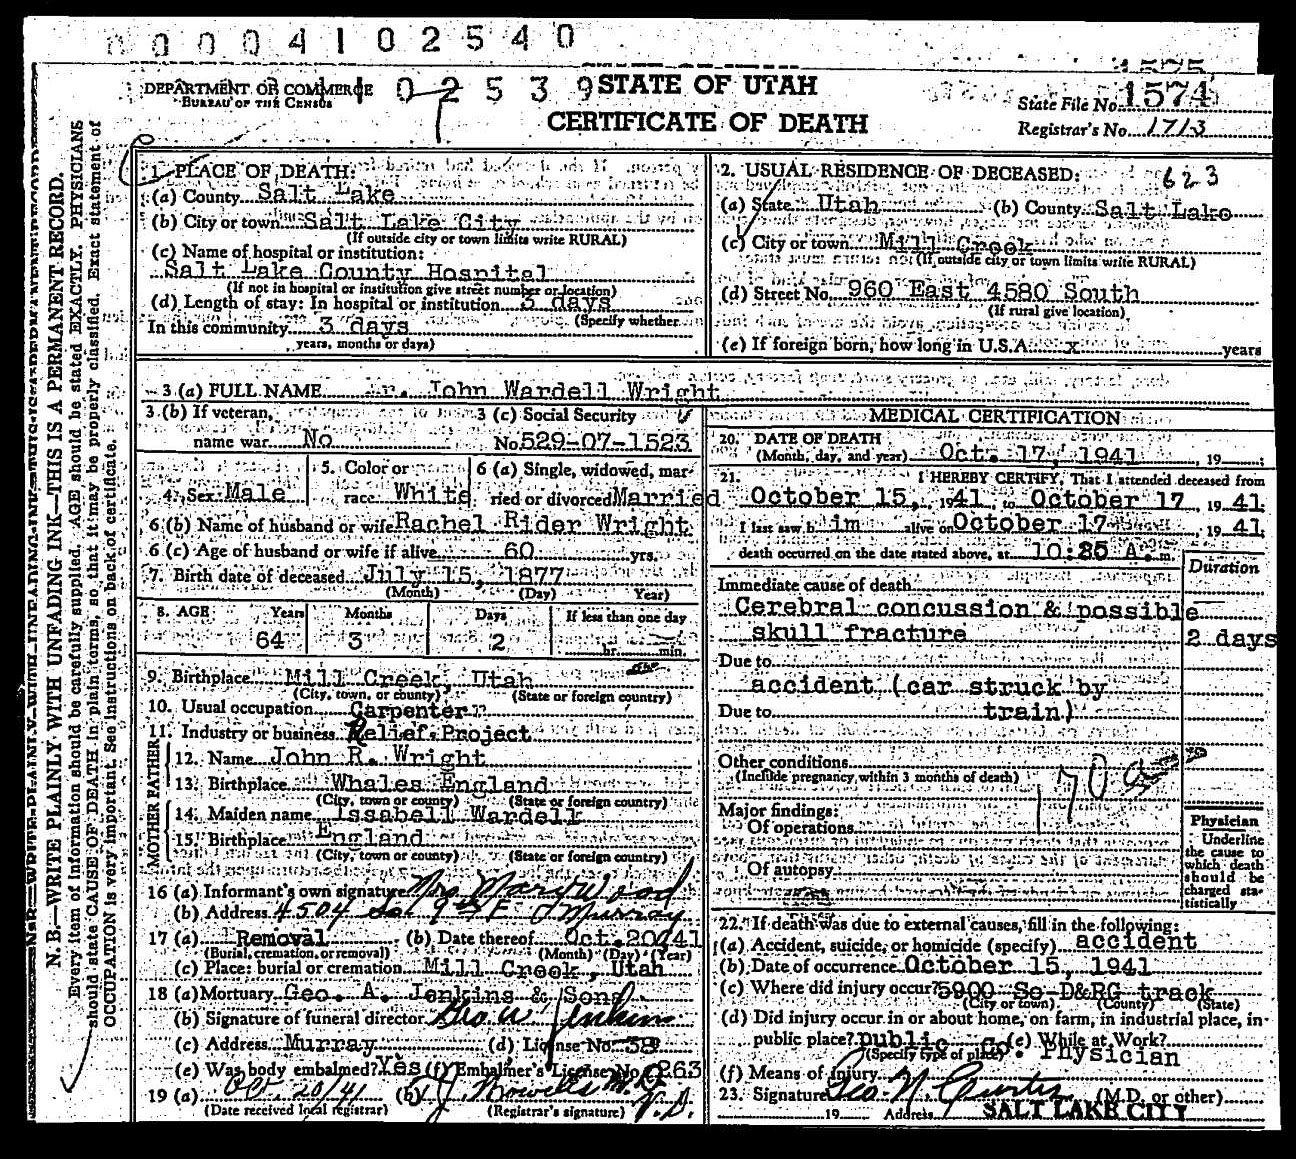 0 0 0 0 4 1 0 2 5 4 0
1575
DEPARTMENT OF COMMERCE
BUREAU OF THE CENSUS
0 2 5 3 9
STATE OF UTAH
CERTIFICATE OF DEATH
State File No. 1574
Registrar's No. 1713
N. B.—WRITE PLAINLY WITH UNFADING INK—THIS IS A PERMANENT RECORD.
Every item of information should be carefully supplied. AGE should be stated EXACTLY. PHYSICIANS
should state CAUSE OF DEATH in plain terms, so that it may be properly classified. Exact statement of
OCCUPATION is very important. See instructions on back of certificate.
1. PLACE OF DEATH:
(a) County Salt Lake
(b) City or town Salt Lake City
(If outside city or town limits write RURAL)
(c) Name of hospital or institution:
Salt Lake County Hospital
(If not in hospital or institution give street number or location)
(d) Length of stay: In hospital or institution 3 days
(Specify whether
In this community 3 days
years, months or days)
2. USUAL RESIDENCE OF DECEASED: 623
(a) State Utah (b) County Salt Lake
(c) City or town Mill Creek
(If outside city or town limits write RURAL)
(d) Street No. 960 East 4580 South
(If rural give location)
(e) If foreign born, how long in U.S.A. x years
3 (a) FULL NAME r. John Wardell Wright
3 (b) If veteran, 3 (c) Social Security
name war No No. 529-07-1523
4. Sex Male 5. Color or race White 6 (a) Single, widowed, married or divorced Married
6 (b) Name of husband or wife Rachel Rider Wright
6 (c) Age of husband or wife if alive 60 yrs.
7. Birth date of deceased July 15, 1877
(Month) (Day) Year)
8. AGE Years Months Days If less than one day
64 3 2 hr. min.
9. Birthplace Mill Creek, Utah
(City, town, or county) (State or foreign country)
10. Usual occupation Carpenter
11. Industry or business Relief Project
FATHER
12. Name John R. Wright
13. Birthplace Whales England
(City, town or county) (State or foreign country)
MOTHER
14. Maiden name Issabell Wardell
15. Birthplace England
(City, town or county) (State or foreign country)
16 (a) Informant's own signature Mrs Mary Wood
(b) Address 4504 So. 9th E Murray
17 (a) Removal (b) Date thereof Oct. 20/41
(Burial, cremation, or removal) (Month) (Day) (Year)
(c) Place: burial or cremation Mill Creek, Utah
18 (a) Mortuary Geo. A. Jenkins & Sons
(b) Signature of funeral director Geo A Jenkins
(c) Address Murray (d) License No. 38
(e) Was body embalmed? Yes (f) Embalmer's License No. 263
19 (a) Oct. 20/41 (b) M.D.
(Date received local registrar) (Registrar's signature)
MEDICAL CERTIFICATION
20. DATE OF DEATH
(Month, day, and year) Oct. 17, 1941, 19
21. I HEREBY CERTIFY, That I attended deceased from
October 15, 1941, to October 17, 1941
I last saw him alive on October 17, 1941
death occurred on the date stated above, at 10:25 A. m.
Duration
Immediate cause of death
Cerebral concussion & possible
skull fracture 2 days
Due to
accident (car struck by
Due to train)
Other conditions
(Include pregnancy within 3 months of death)
170
Major findings:
Of operations
Of autopsy
Physician
Underline
the cause to
which death
should be
charged sta-
tistically
22. If death was due to external causes, fill in the following:
(a) Accident, suicide, or homicide (specify) accident
(b) Date of occurrence October 15, 1941
(c) Where did injury occur? 5900 So D&RG track
(City or town) (County) (State)
(d) Did injury occur in or about home, on farm, in industrial place, in-
public place? public (e) While at Work?
(Specify type of place) Co. Physician
(f) Means of Injury
23. Signature Geo. N. Curtis (M.D. or other)
19 Address SALT LAKE CITY